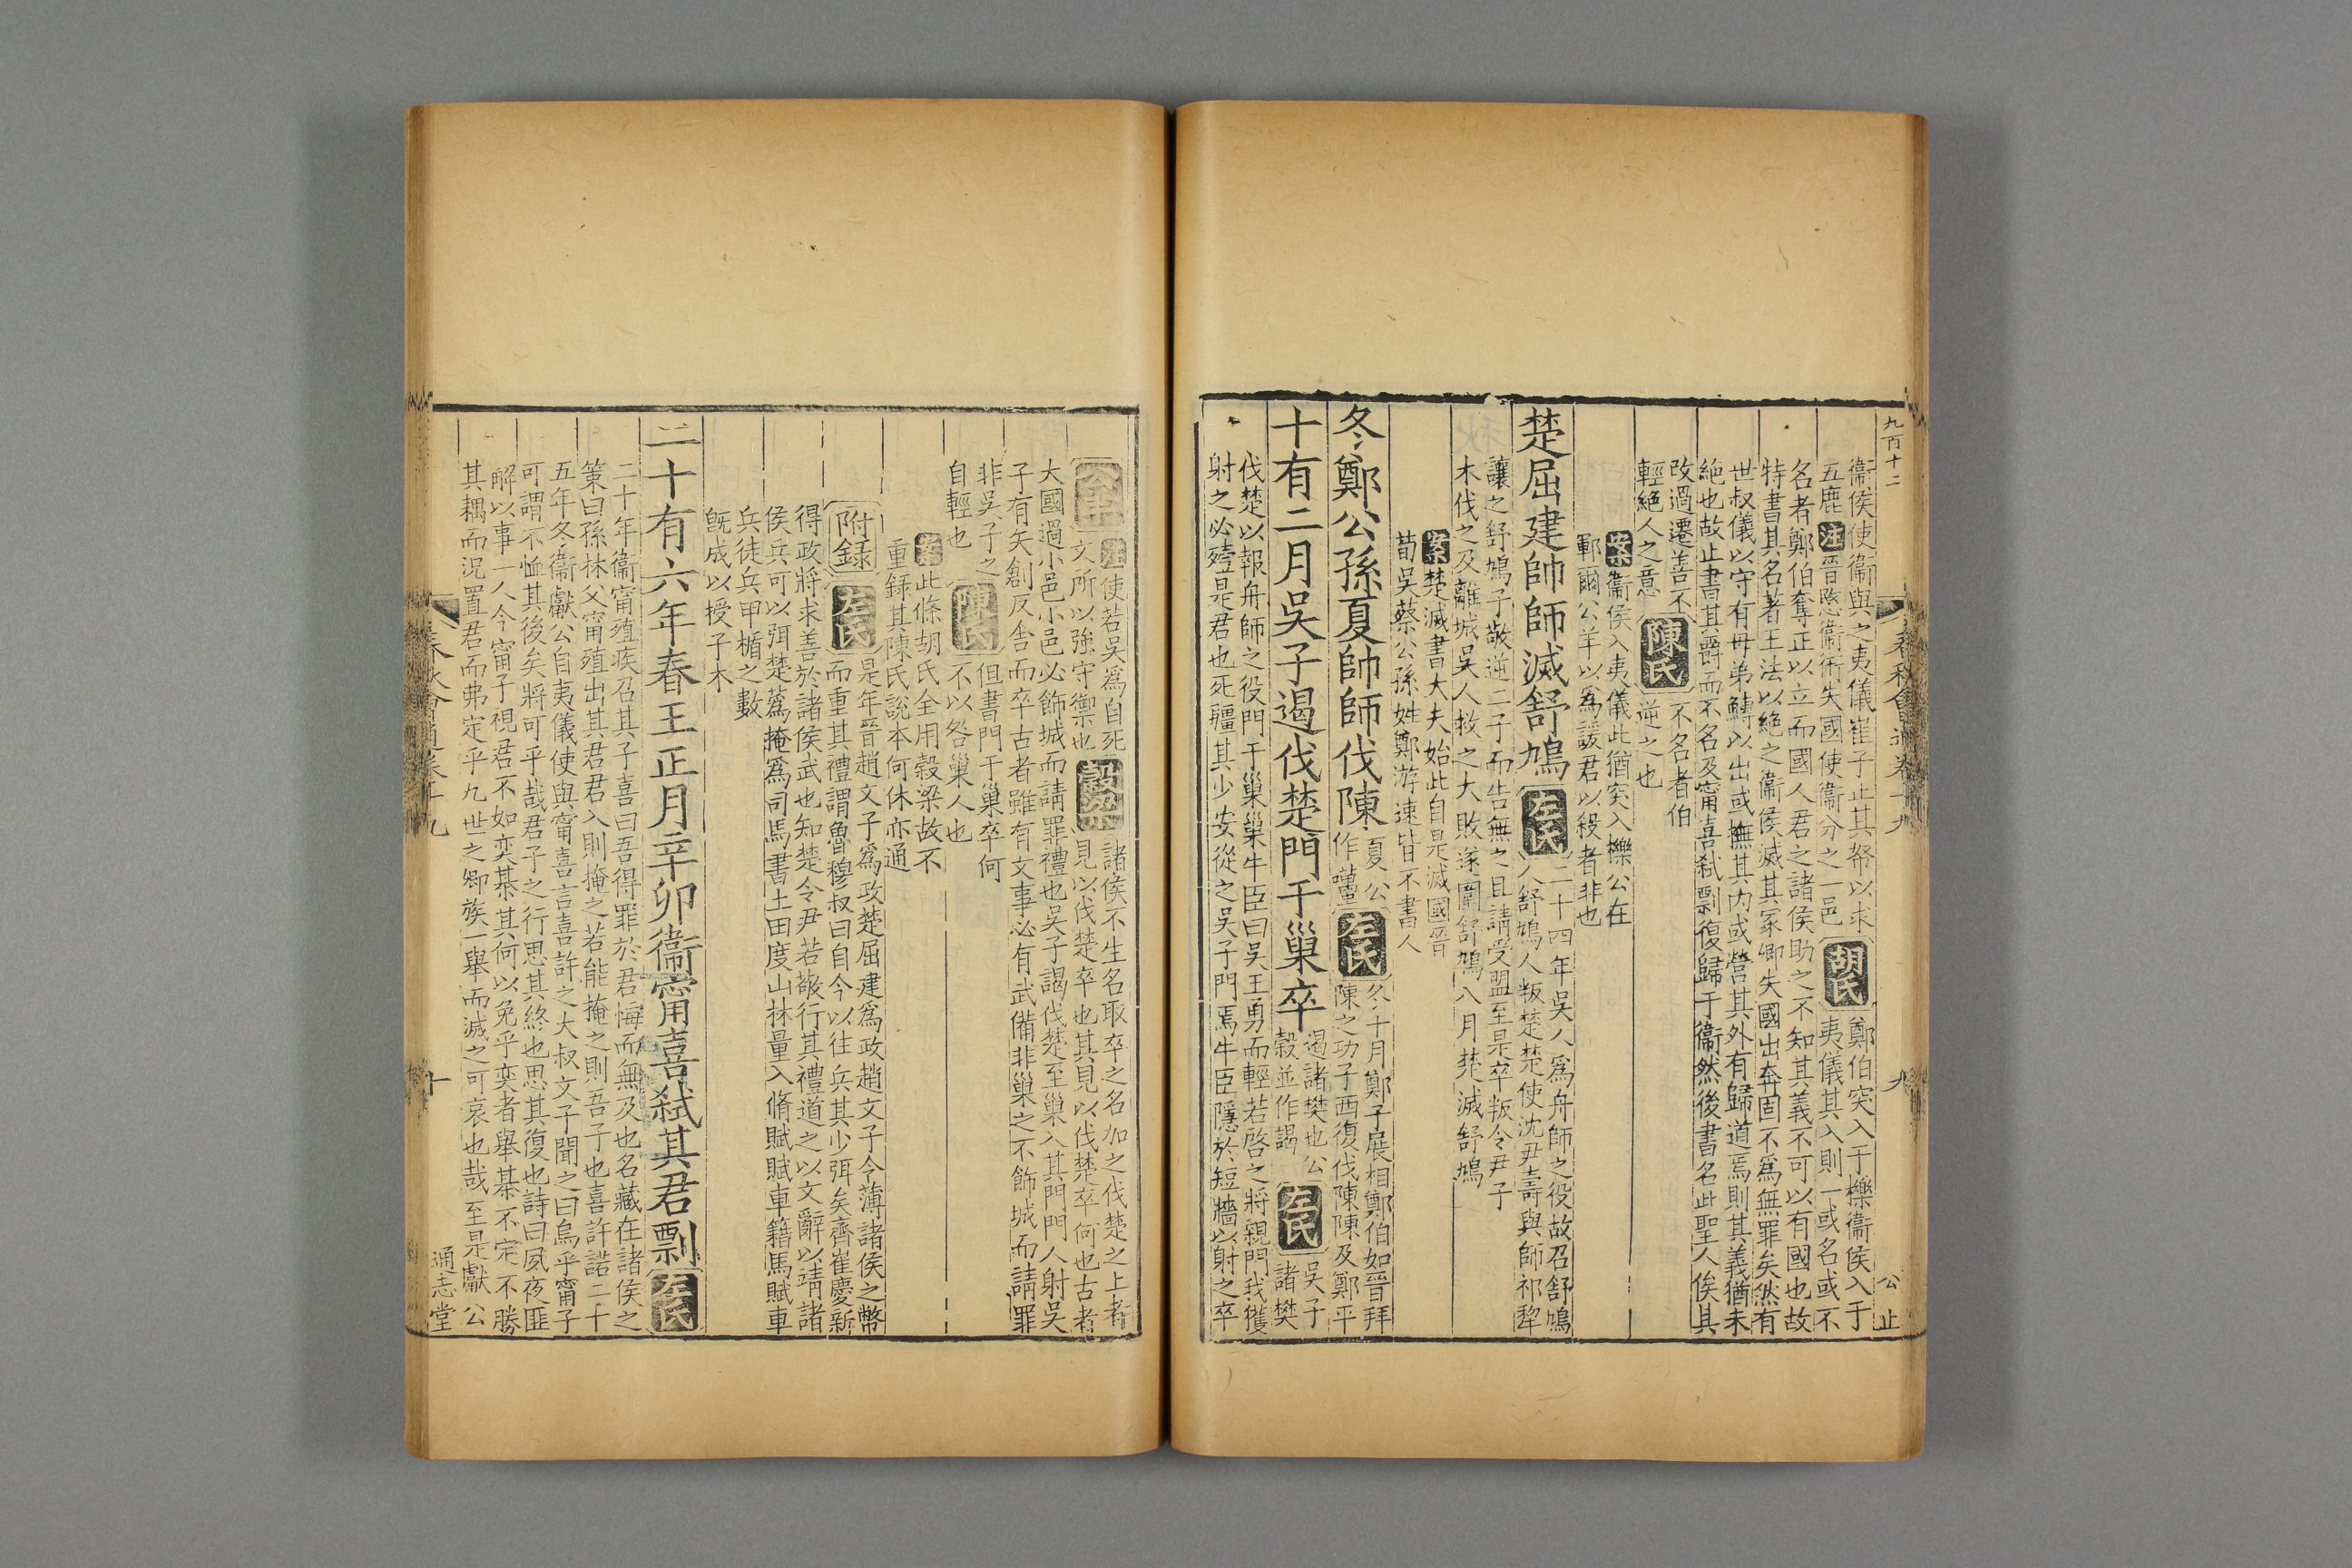 九百十二
春秋會通卷十九
九
公止
衞侯使衞與之夷儀崔子止其帑以求
五鹿注晋愍衞衎失國使衞分之一邑胡氏鄭伯突入于櫟衞侯入于
夷儀其入則一或名或不
名者鄭伯奪正以立而國人君之諸侯助之不知其義不可以有國也故
特書其名著王法以絶之衞侯滅其家卿失國出奔固不爲無罪矣然有
世叔儀以守有母弟鱄以出或撫其内或營其外有歸道焉則其義猶未
絶也故止書其爵而不名及甯喜弑剽復歸于衞然後書名此聖人俟其
改過遷善不
輕絶人之意陳氏不名者伯
逆之也
案衞侯入夷儀此猶突入櫟公在
鄆爾公羊以爲諼君以殺者非也
楚屈建帥師滅舒鳩左氏二十四年吳人爲舟師之役故召舒鳩
人舒鳩人叛楚楚使沈尹壽與師祁犂
讓之舒鳩子敬逆二子而告無之且請受盟至是卒叛令尹子
木伐之及離城吳人救之大敗遂圍舒鳩八月楚滅舒鳩
案楚滅書大夫始此自是滅國晋
荀吳蔡公孫姓鄭游速皆不書人
冬鄭公孫夏帥師伐陳夏公
作囆左氏冬十月鄭子展相鄭伯如晋拜
陳之功子西復伐陳陳及鄭平
十有二月吳子遏伐楚門于巢卒遏諸樊也公
穀並作謁左氏吳子
諸樊
伐楚以報舟師之役門于巢巢牛臣曰吳王勇而輕若啓之將親門我獲
射之必殪是君也死疆其少安從之吳子門焉牛臣隱於短牆以射之卒
公羊注使若吳爲自死
文所以強守禦也穀梁諸侯不生名取卒之名加之伐楚之上者
見以伐楚卒也其見以伐楚卒何也古者
大國過小邑小邑必飾城而請罪禮也吳子謁伐楚至巢入其門門人射吳
子有矢創反舍而卒古者雖有文事必有武備非巢之不飾城而請罪
非吳子之
自輕也陳氏但書門于巢卒何
不以咎巢人也
案此條胡氏全用穀梁故不
重録其陳氏說本何休亦通
附録左氏是年晉趙文子爲政楚屈建爲政趙文子令薄諸侯之幣
而重其禮謂魯穆叔曰自今以往兵其少弭矣齊崔慶新
得政將求善於諸侯武也知楚令尹若敬行其禮道之以文辭以靖諸
侯兵可以弭楚蒍掩爲司馬書土田度山林量入脩賦賦車籍馬賦車
兵徒兵甲楯之數
旣成以授子木
二十有六年春王正月辛卯衞甯喜弑其君剽左氏
二十年衞甯殖疾召其子喜曰吾得罪於君悔而無及也名藏在諸侯之
策曰孫林父甯殖出其君君入則掩之若能掩之則吾子也喜許諾二十
五年冬衞獻公自夷儀使與甯喜言喜許之大叔文子聞之曰烏乎甯子
可謂不恤其後矣將可乎哉君子之行思其終也思其復也詩曰夙夜匪
解以事一人今甯子視君不如奕棊其何以免乎奕者舉棊不定不勝
其耦而況置君而弗定乎九世之卿族一舉而滅之可哀也哉至是獻公
春秋會通卷十九
十
通志堂